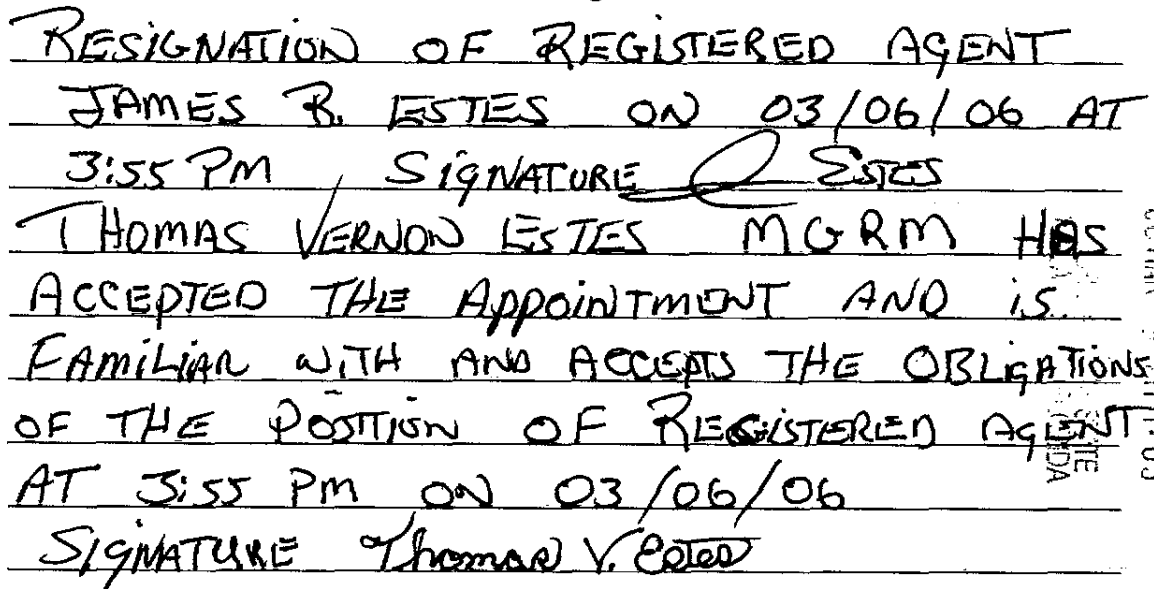 RESIGNATION OF REGISTERED AGENT
JAMES R. ESTES ON 03/06/06 AT
3:55 PM SIGNATURE Estes
THOMAS VERNON ESTES MGRM HAS
ACCEPTED THE APPOINTMENT AND is
FAMILIAR WITH AND ACCEPTS THE OBLIGATIONS
OF THE POSITION OF REGISTERED AGENT
AT 3:55 PM ON 03/06/06
SIGNATURE Thomas V. Estes